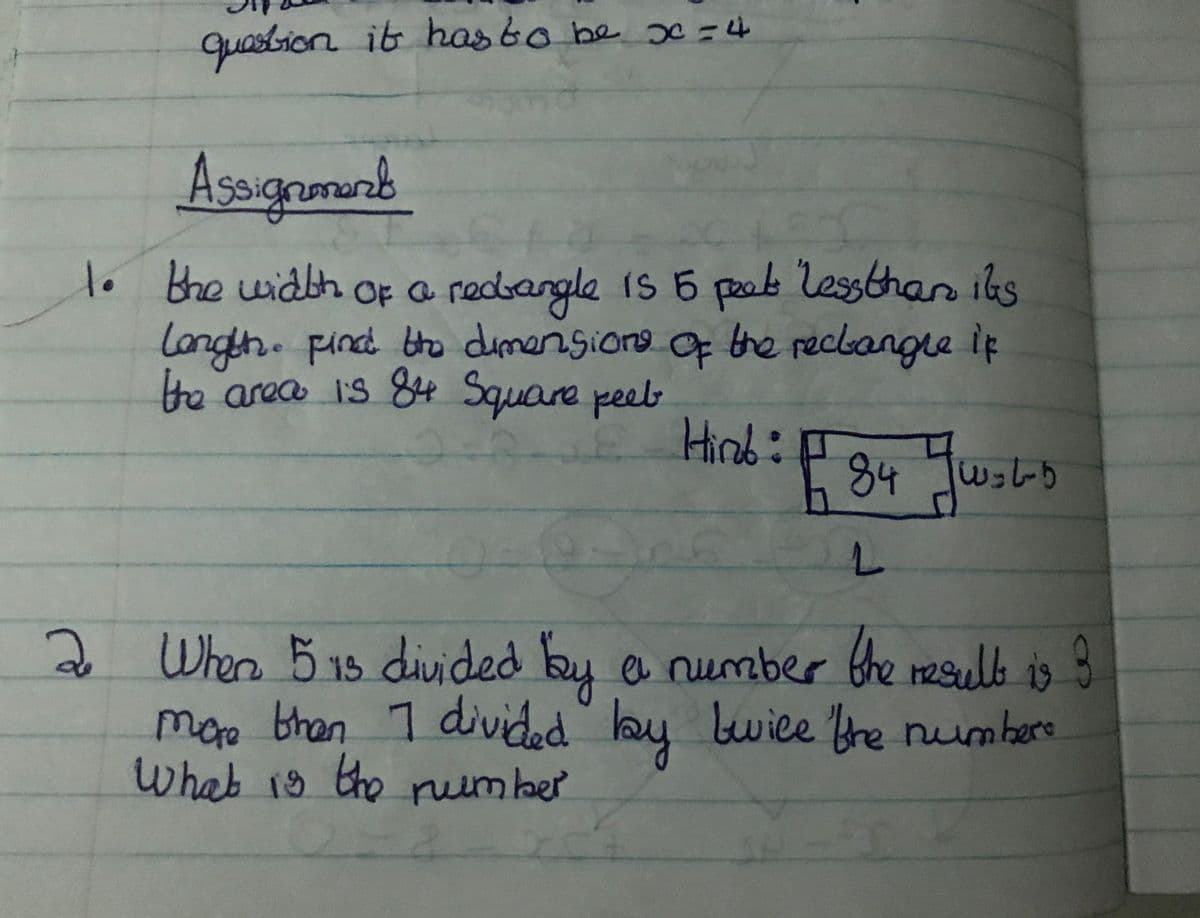 question it has to be x = 4
Assignment
1. the width of a rectangle is 5 feet less than its
length. find the dimensions of the rectangle if
the area is 84 Square feet
Hint: 84 W=L-5
L
2. When 5 is divided by a number the result is 3
more than 7 divided by twice the number.
What is the number